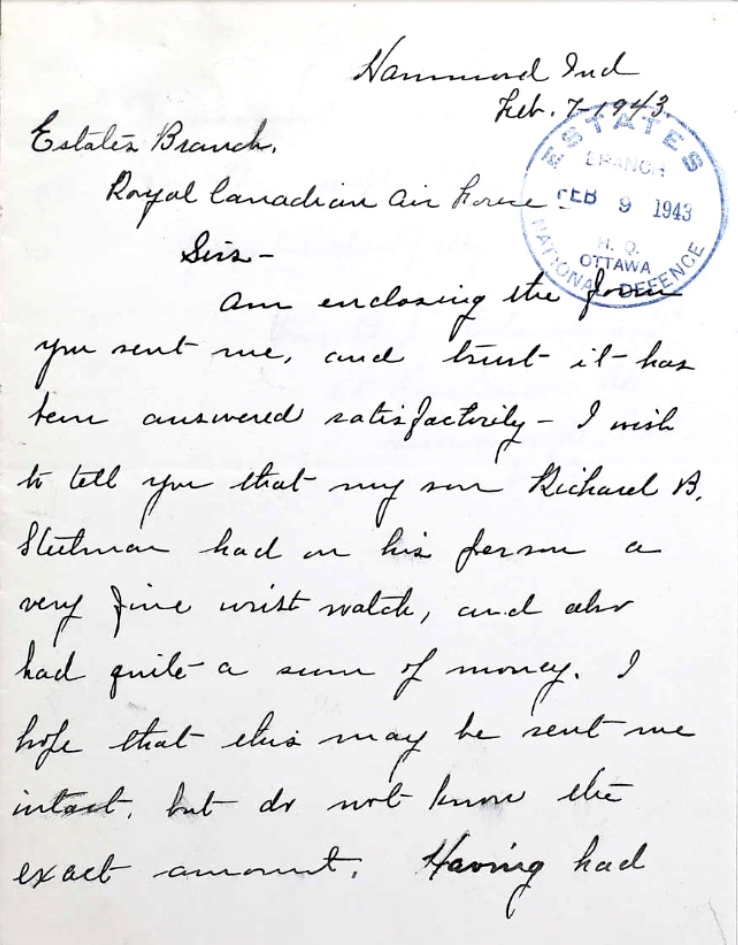 Hammond Ind
Feb. 7-1943.
Estates Branch,
Royal Canadian Air Force -
ESTATES
BRANCH
FEB 9 1943
H. Q.
OTTAWA
NATIONAL DEFENCE
Sirs -
Am enclosing the form
you sent me, and trust it has
been answered satisfactorily - I wish
to tell you that my son Richard B.
had on his person a
very fine wrist watch, and also
had quite a sum of money. I
hope that this may be sent me
intact, but do not know the
exact amount. Having had